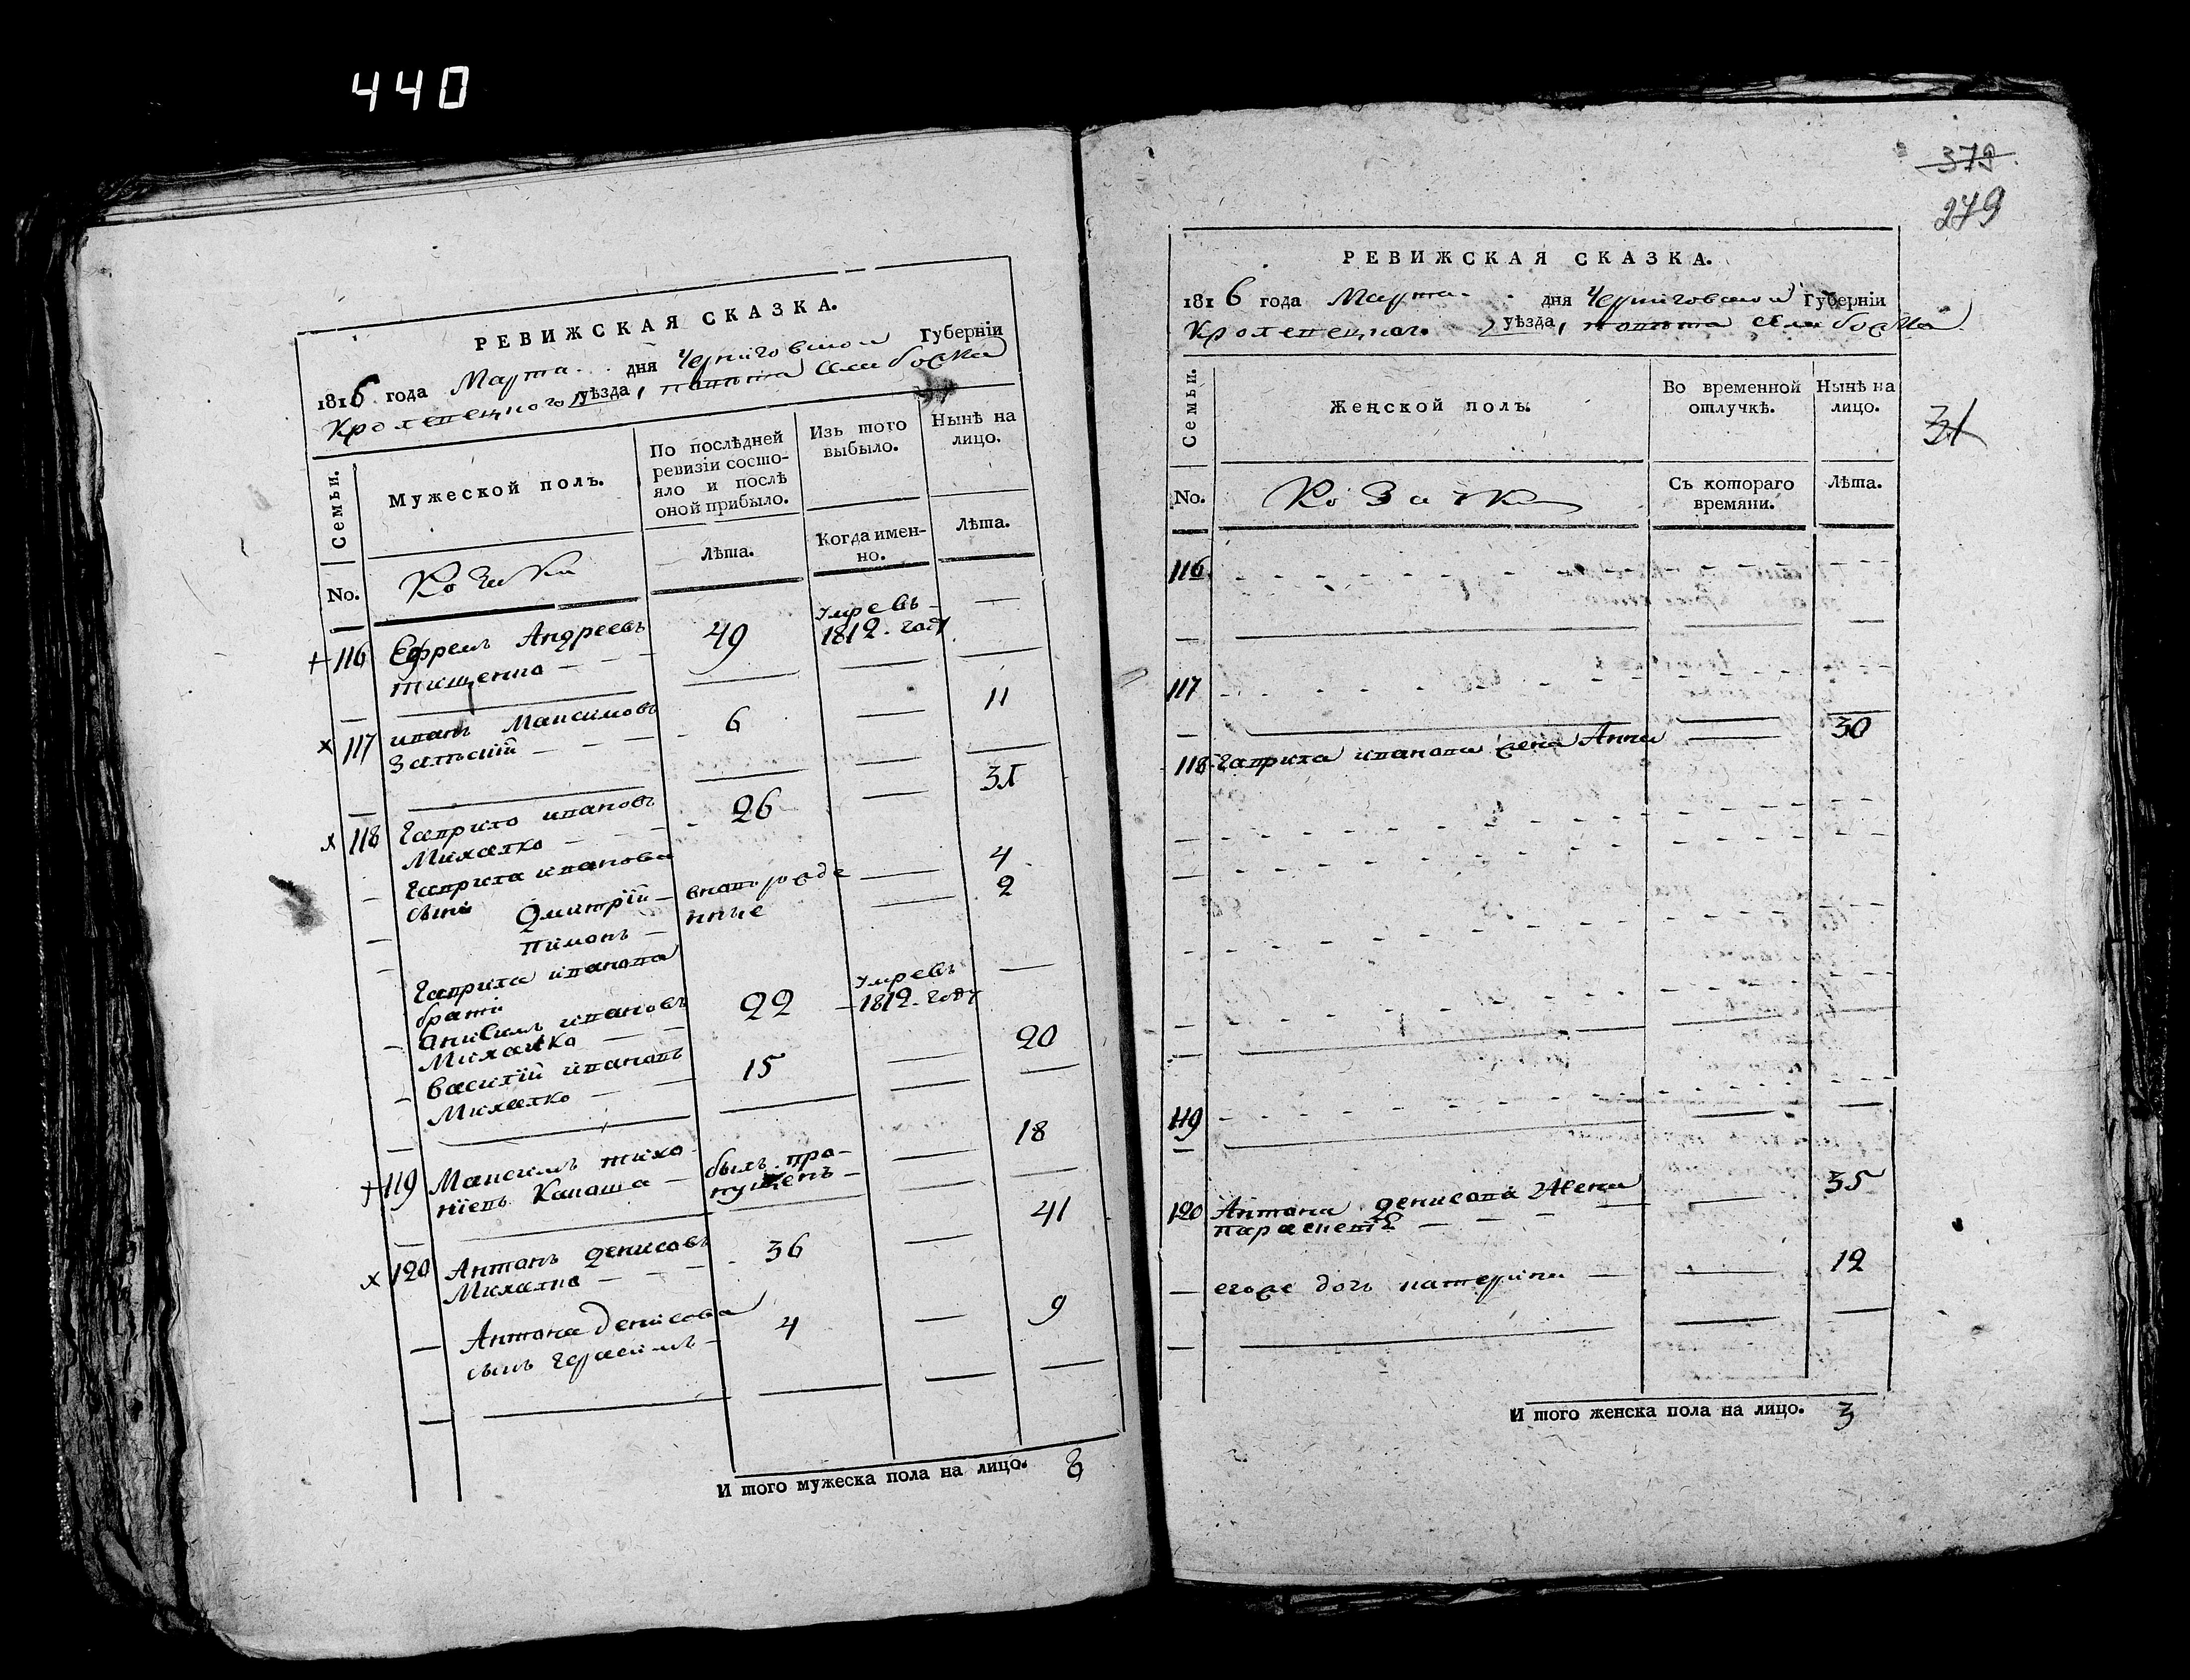 440
РЕВИЖСКАЯ СКАЗКА.
1816 года Марта дня Черниговской Губерніи
Кролевецкого уѣзда,
Семьи.
Мужеской полъ.
По послѣдней ревизіи состо-
яло и послѣ
оной прибыло.
Изъ того
выбыло.
Нынѣ на
лицо.
Лѣта.
Когда имен-
но.
Лѣта.
No.
Козаки
116 Ефремъ Андреевъ
Тищенко 49 умре въ
1812 году
117 иванъ Максимовъ 6 11
118 Гаврило ивановъ
Михалко 26 31
Гаврила иванова
сыни Дмитрій вновь рожде 4
Пимонъ нные 2
Гаврила иванова
братя
Анисимъ ивановъ
Михалко 22 умре въ
1812 году
Василій ивановъ
Михалко 15 20
119 Максимъ тихо
ніевъ былъ про-
пущенъ 18
120 Антонъ Денисовъ
Михалко 36 41
Антона Денисова
сынъ Герасимъ 4 9
И того мужеска пола на лицо. 8
379
279
РЕВИЖСКАЯ СКАЗКА.
1816 года Марта дня Черниговской Губерніи
Кролевецкого уѣзда,
Семьи.
Женской полъ.
Во временной
отлучкѣ.
Нынѣ на
лицо.
31
No.
Козачки
Съ котораго
времяни.
Лѣта.
116
117
118 Гаврила иванова жена Анна 30
119
120 Антона Денисова жена
35
его же дочь катерина 12
И того женска пола на лицо. 3